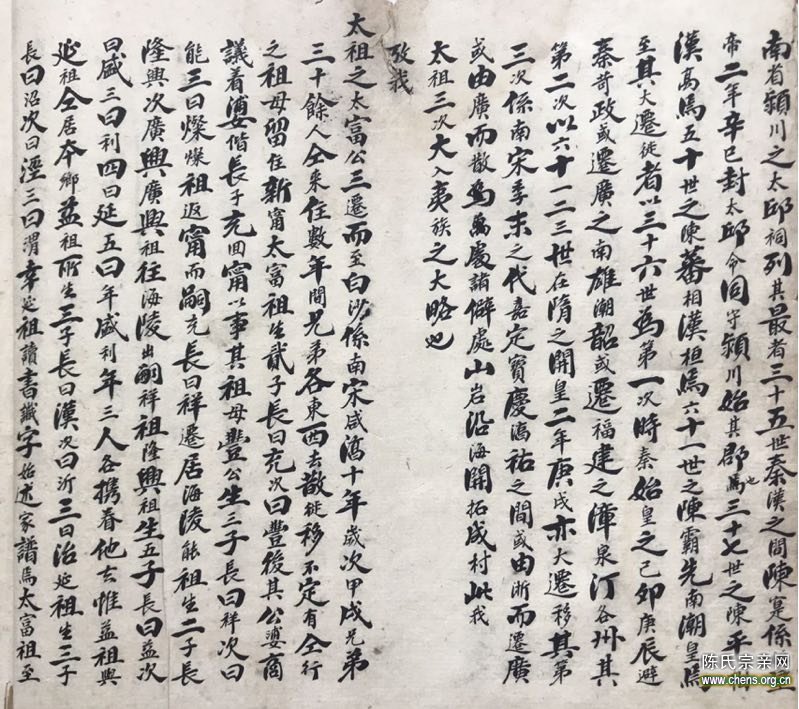 南省穎川之太邱祠列其最者三十五世秦漢之間陳寔係
帝二年辛巳封太邱令同守穎川始其郡也馬三十七世之陳平相
漢高馬五十世之陳蕃相漢桓馬六十一世之陳霸先南潮皇馬
至其大遷徙者以三十六世為第一次時秦始皇之己卯庚辰避
秦苛政或遷廣之南雄潮韶或遷福建之漳泉汀各州其
第二次以六十一二三世在隋之開皇二年庚戌亦大遷移其第
三次係南宋季末之代嘉定寶慶淳祐之間或由浙而遷廣
或由廣而散為萬處諸僻處山岩沿海開拓成村此我
太祖三次大入夷族之大略也
攷我
太祖之太富公三遷而至白沙係南宋咸淳十年歲次甲戌兄弟
三十餘人仝來住數年間兄弟各東西去散徙移不定有仝行
之祖母留住新甯太富祖生貳子長曰充次曰豐後其公婆商
議着婆偕長子充回甯以事其祖母豐公生三子長曰祥次曰
能三曰燦燦祖返甯而嗣充長曰祥遷居海陵能祖生二子長
隆興次廣興廣興祖往海陵出嗣祥祖隆興祖生五子長曰益次
曰盛三曰利四曰延五曰年盛利年三人各携眷他去惟益祖與
延祖仝居本鄉益祖所生三子長曰漢次曰沂三曰治延祖生三子
長曰沼次曰涇三曰渭幸定祖讀書識字始述家譜馬太富祖至
陈氏宗亲网
www.chens.org.cn